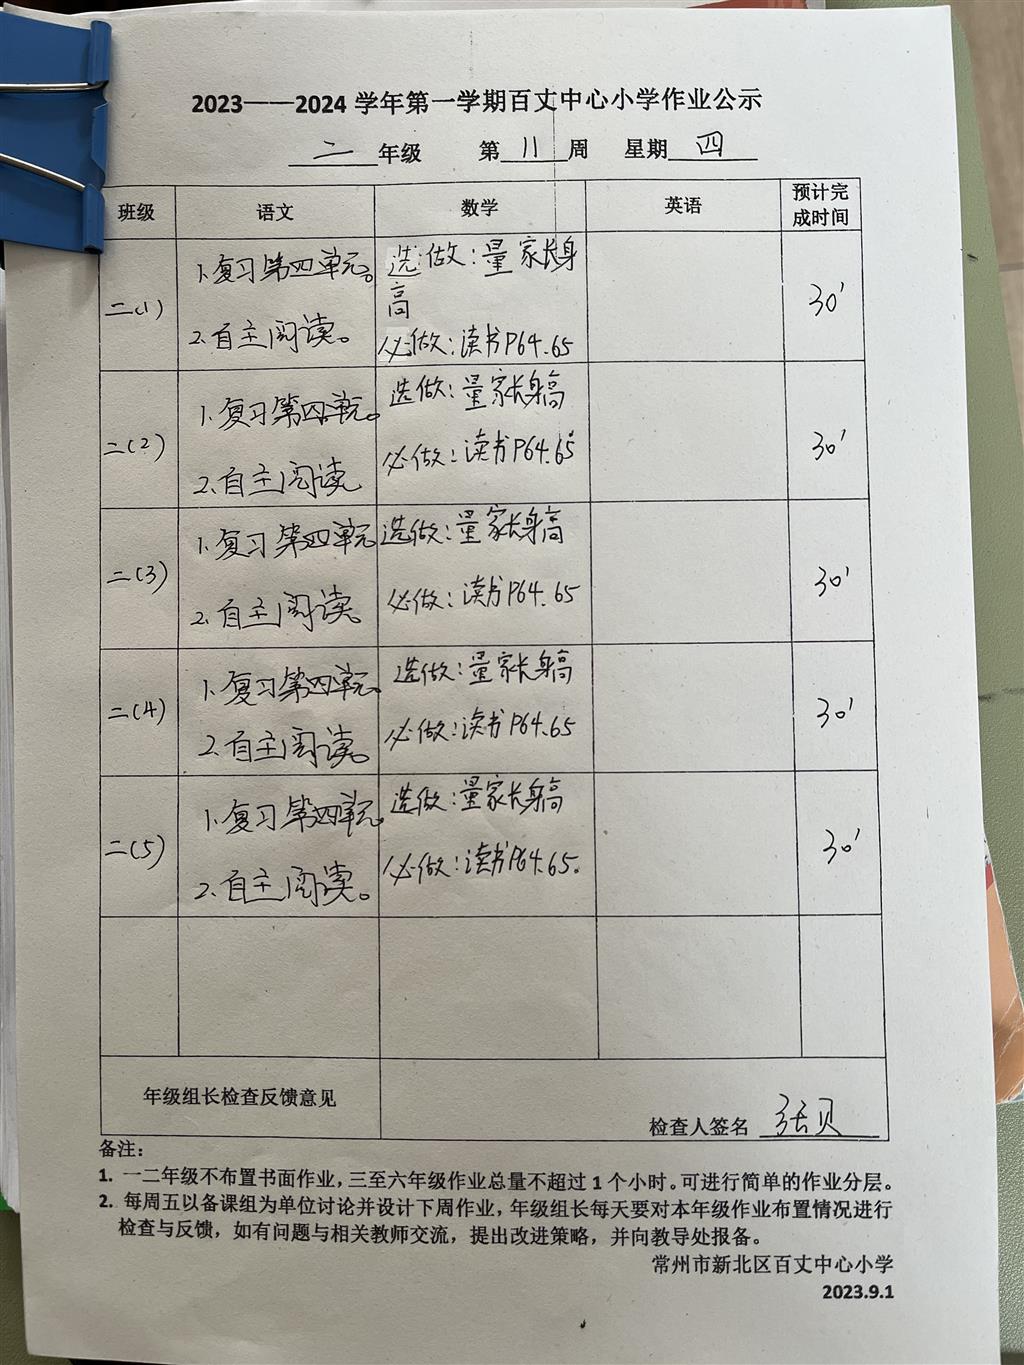 2023——2024 学年第一学期百丈中心小学作业公示
二 年级 第 11 周 星期 四
班级 语文 数学 英语 预计完成时间
二(1)
1.复习第四单元。
2.自主阅读。
选做：量家长身
高
必做：读书P64.65
30'
二(2)
1.复习第四单元。
2.自主阅读
选做：量家长身高
必做：读书P64.65
30'
二(3)
1.复习第四单元
2.自主阅读。
选做：量家长身高
必做：读书P64.65
30'
二(4)
1.复习第四单元。
2.自主阅读。
选做：量家长身高
必做：读书P64.65
30'
二(5)
1.复习第四单元。
2.自主阅读。
选做：量家长身高
必做：读书P64.65.
30'
年级组长检查反馈意见
检查人签名 张贝
备注：
1. 一二年级不布置书面作业，三至六年级作业总量不超过 1 个小时。可进行简单的作业分层。
2. 每周五以备课组为单位讨论并设计下周作业，年级组长每天要对本年级作业布置情况进行
检查与反馈，如有问题与相关教师交流，提出改进策略，并向教导处报备。
常州市新北区百丈中心小学
2023.9.1